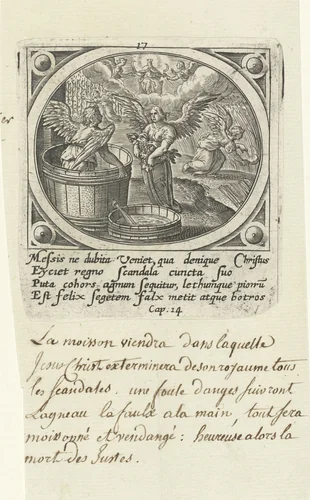 17
Messis ne dubita Veniet, qua denique Christus
Eyciet regno scandala cuncta suo
Puta cohors agnum sequitur, lethumque piorũ
Est felix segetem falx metit atque botros
Cap. 14
La moisson viendra dans laquelle
Jesus Christ exterminera de son royaume tous
les scandales. une foule danges suivront
Lagneau la faulx a la main, tout sera
moissonné et vendangé : heureuse alors la
mort des Justes.